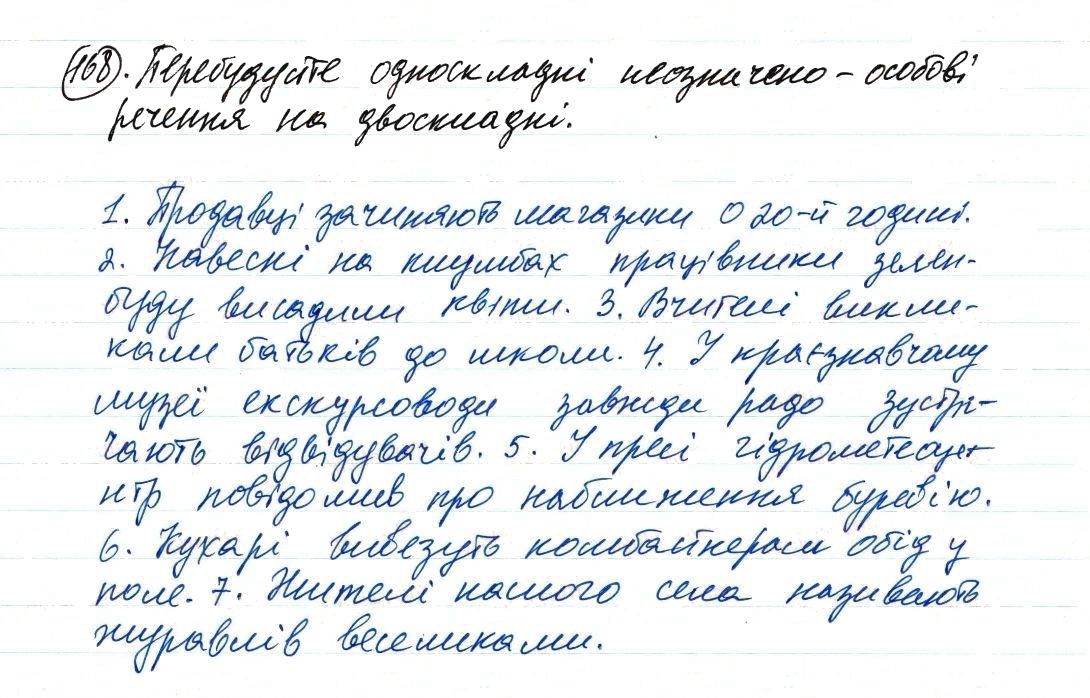 168. Перебудуйте односкладні неозначено-особові
речення на двоскладні.
1. Продавці зачиняють магазини о 20-й годині.
2. Навесні на клумбах працівники зелен-
буду висадили квіти. 3. Вчителі викли-
кали батьків до школи. 4. У краєзнавчому
музеї екскурсоводи завжди радо зустрі-
чають відвідувачів. 5. У пресі гідрометеоце-
нтр повідомив про наближення буревію.
6. Кухарі вивезуть комбайнерам обід у
поле. 7. Жителі нашого села називають
журавлів веселиками.